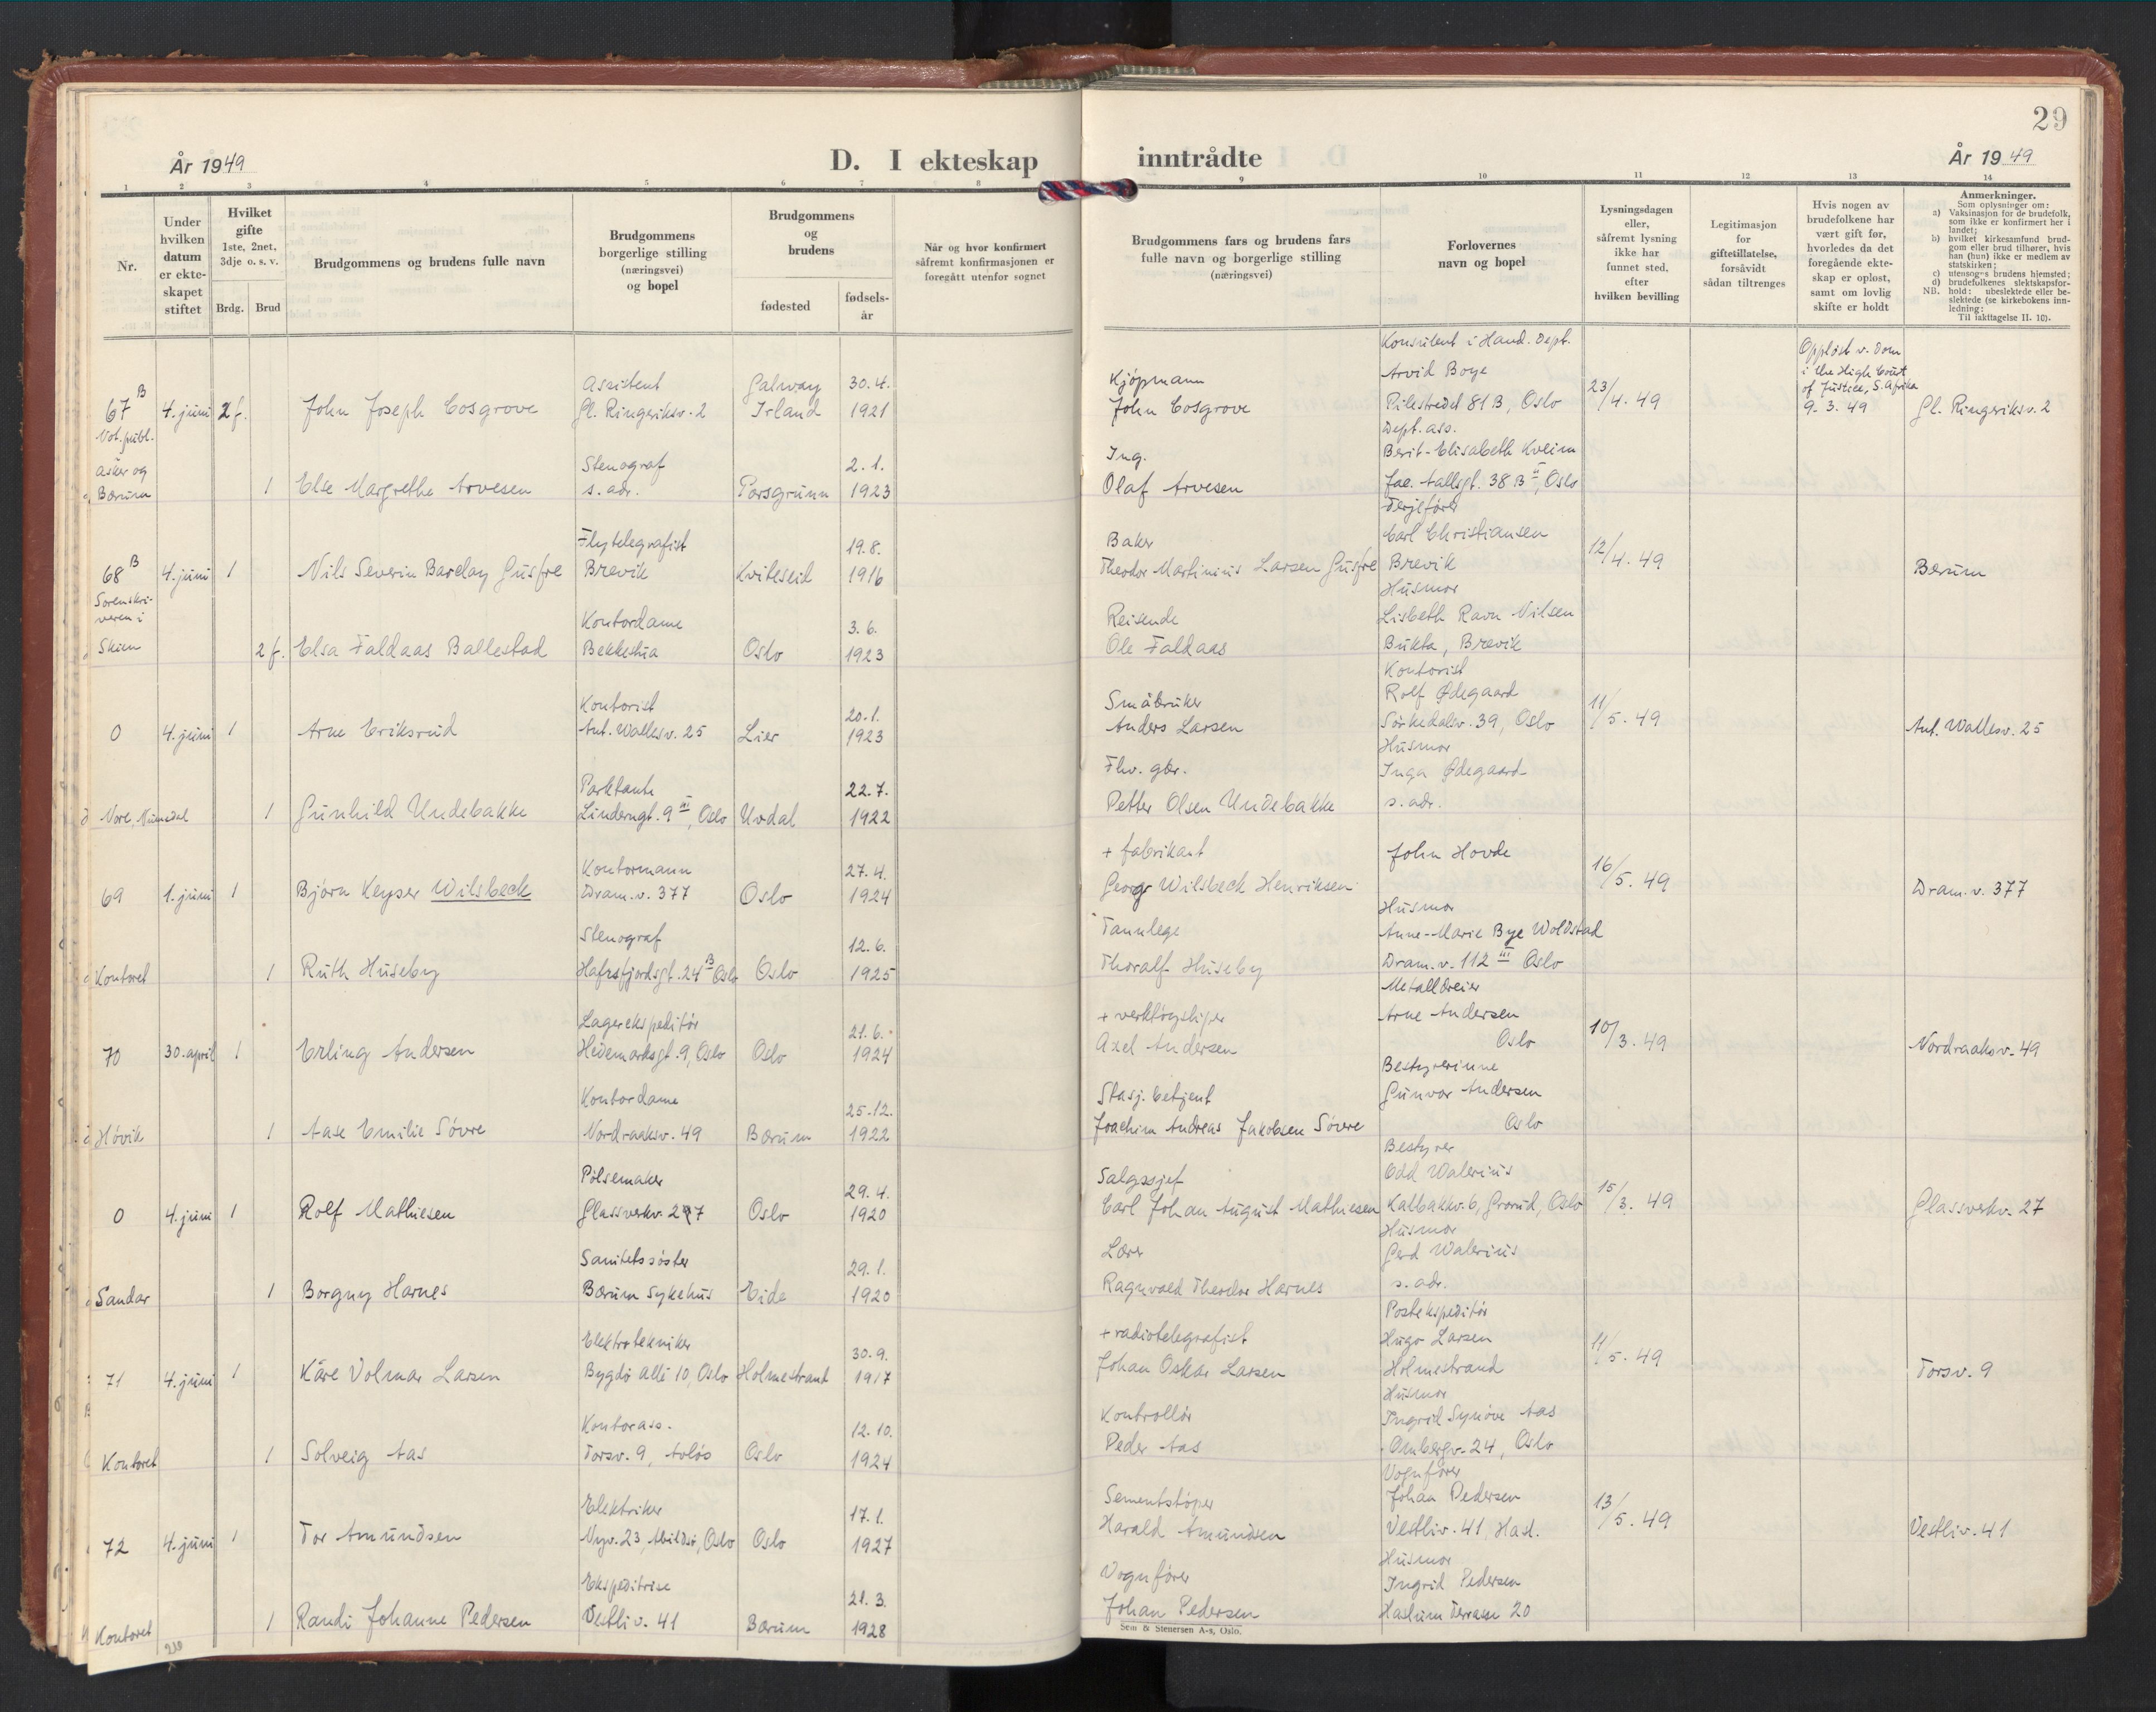 29
År 1949
D. I ekteskap
inntrådte
År 1949
1 2 3 4 5 6 7 8 9 10 11 12 13 14
Nr.
Under
hvilken
datum
er ekte-
skapet
stiftet
Hvilket
gifte
1ste, 2net,
3dje o. s. v.
Brdg. Brud
Brudgommens og brudens fulle navn
Brudgommens
borgerlige stilling
(næringsvei)
og bopel
Brudgommens
og
brudens
fødested
fødsels-
år
Når og hvor konfirmert
såfremt konfirmasjonen er
foregått utenfor sognet
Brudgommens fars og brudens fars
fulle navn og borgerlige stilling
(næringsvei)
Forlovernes
navn og bopel
Lysningsdagen
eller,
såfremt lysning
ikke har
funnet sted,
efter
hvilken bevilling
Legitimasjon
for
giftetillatelse,
forsåvidt
sådan tiltrenges
Hvis nogen av
brudefolkene har
vært gift før,
hvorledes da det
foregående ekte-
skap er opløst,
samt om lovlig
skifte er holdt
Anmerkninger.
Som oplysninger om:
a) Vaksinasjon for de brudefolk,
som ikke er konfirmert her i
landet;
b) hvilket kirkesamfund brud-
gom eller brud tilhører, hvis
han (hun) ikke er medlem av
statskirken;
c) utensogns brudens hjemsted;
d) brudefolkenes slektskapsfor-
NB. hold: ubeslektede eller be-
slektede (se kirkebokens inn-
ledning:
Til iakttagelse II. 10).
67 B
Not. publ.
4. juni
2 f.
John Joseph Cosgrove
Assistent
Gl. Ringeriksv. 2
Galway
Irland
30. 4.
1921
Kjøpmann
John Cosgrove
Konsulent i Hand. Dept.
Arvid Boye
Pilestredet 81 B, Oslo
23/4. 49
Oppløst v. dom
i the High Court
of Justice, S. Afrika
9. 3. 49
Gl. Ringeriksv. 2
Asker og
Bærum
1
Else Margrethe Arvesen
Stenograf
s. adr.
Porsgrunn
2. 1.
1923
Ing.
Olaf Arvesen
Dept. ass.
Berit-Elisabeth Kveim
Jac. Aallsgt. 38 B II, Oslo
68 B
Sorenskri-
veren i
4. juni
1
Nils Severin Barclay Gusfre
Flytelegrafist
Brevik
Kviteseid
19. 8.
1916
Baker
Theodor Martinius Larsen Gusfre
Ferjefører
Carl Christiansen
Brevik
12/4. 49
Bærum
Skien
2 f.
Elsa Faldaas Ballestad
Kontordame
Bekkestua
Oslo
3. 6.
1923
Reisende
Ole Faldaas
Husmor
Lisbeth Ravn Nilsen
Bukta, Brevik
0
4. juni
1
Arne Eriksrud
Kontorist
Ant. Wallesv. 25
Lier
20. 1.
1923
Småbruker
Anders Larsen
Kontorist
Rolf Ødegaard
Sørkedalsv. 39, Oslo
11/5. 49
Ant. Wallesv. 25
Nore, Numedal
1
Gunhild Undebakke
Parktante
Linderngt. 9 III, Oslo
Uvdal
22. 7.
1922
Fhv. gbr.
Petter Olsen Undebakke
Husmor
Inga Ødegaard
s. adr.
69
1. juni
1
Bjørn Keyser Wilsbeck
Kontormann
Dram. v. 377
Oslo
27. 4.
1924
+ fabrikant
Georg Wilsbeck Henriksen
John Hovde
16/5. 49
Dram. v. 377
Kontoret
1
Ruth Huseby
Stenograf
Hafrsfjordsgt. 24 B Oslo
Oslo
12. 6.
1925
Tannlege
Thoralf Huseby
Husmor
Anne-Marie Bye Woldstad
Dram. v. 112 III Oslo
70
30. april
1
Erling Andersen
Lagerekspeditør
Hedemarksgt. 9, Oslo
Oslo
21. 6.
1924
+ verktøysliper
Axel Andersen
Metalldreier
Arne Andersen
Oslo
10/3. 49
Nordraaksv. 49
Høvik
1
Aase Emilie Søvre
Kontordame
Nordraaksv. 49
Bærum
25. 12.
1922
Stasj. betjent
Joachim Andreas Jakobsen Søvre
Bestyrerinne
Gunvor Andersen
Oslo
0
4. juni
1
Rolf Mathiesen
Pølsemaker
Glassverkv. 27
Oslo
29. 4.
1920
Salgssjef
Carl Johan August Mathiesen
Bestyrer
Odd Walerius
Kalbakkv. 6, Grorud, Oslo
15/3. 49
Glassverkv. 27
Sandar
1
Borgny Harnes
Sanitetssøster
Bærum Sykehus
Eide
29. 1.
1920
Lærer
Ragnvald Theodor Harnes
Husmor
Gerd Walerius
s. adr.
71
4. juni
1
Kåre Volmar Larsen
Elektrotekniker
Bygdø allé 10, Oslo
Holmestrand
30. 9.
1917
+ radiotelegrafist
Johan Oskar Larsen
Postekspeditør
Hugo Larsen
Holmestrand
11/5. 49
Torsv. 9
Kontoret
1
Solveig Aas
Kontorass.
Torsv. 9, Avløs
Oslo
12. 10.
1924
Kontrollør
Peder Aas
Husmor
Ingrid Synøve Aas
Ombergv. 24, Oslo
72
4. juni
1
Tor Amundsen
Elektriker
Nyv. 23, Abildsø, Oslo
Oslo
17. 1.
1927
Sementstøper
Harald Amundsen
Vognfører
Johan Pedersen
Vestliv. 41, Hasl.
13/5. 49
Vestliv. 41
Kontoret
1
Randi Johanne Pedersen
Ekspeditrise
Vestliv. 41
Bærum
21. 3.
1928
Vognfører
Johan Pedersen
Husmor
Ingrid Pedersen
Haslum Terrasse 20
Sem & Stenersen A-s, Oslo.